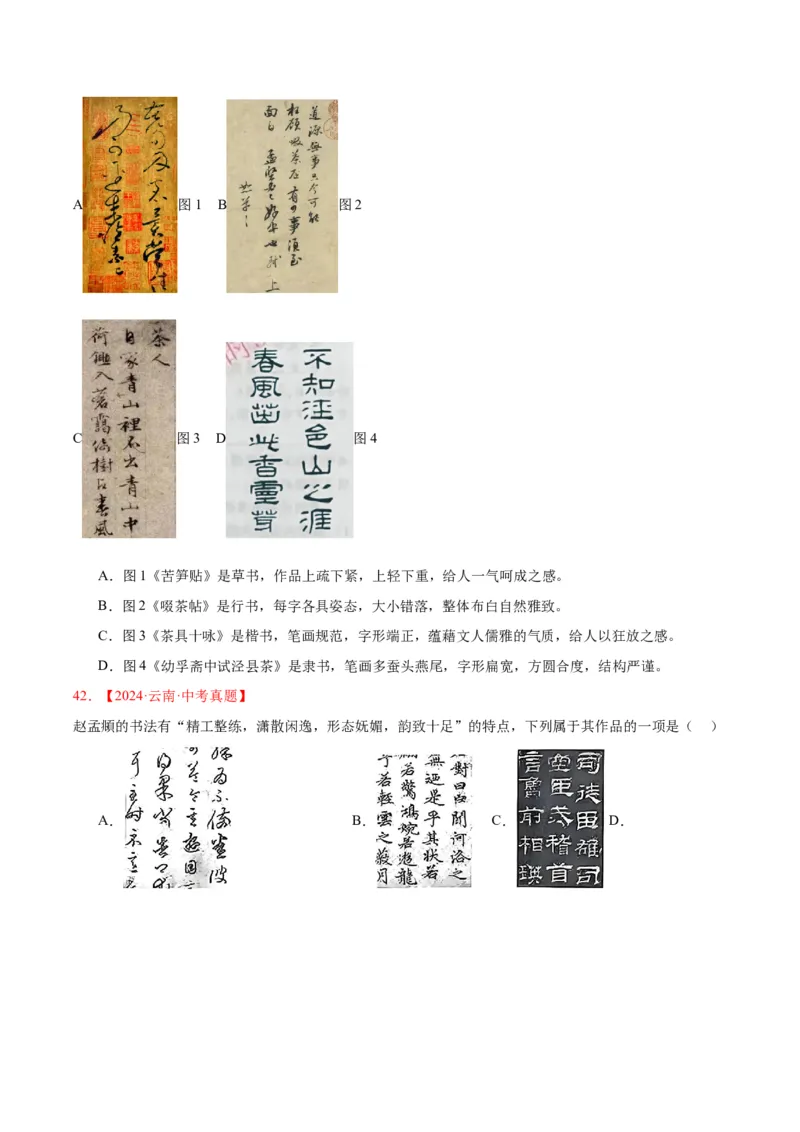 A
图1
B
图2
道源無事只今可能
枉顧啜茶否有少事須至
面白
孟堅必已好安也軾上
恕草草
C
图3
D
图4
茶人
自家青山裡不出青山中
荷鋤入蒼靄倚樹占春風
不知泾邑山之涯
春風茁此香靈芽
A．图1《苦笋贴》是草书，作品上疏下紧，上轻下重，给人一气呵成之感。
B．图2《啜茶帖》是行书，每字各具姿态，大小错落，整体布白自然雅致。
C．图3《茶具十咏》是楷书，笔画规范，字形端正，蕴藉文人儒雅的气质，给人以狂放之感。
D．图4《幼孚斋中试泾县茶》是隶书，笔画多蚕头燕尾，字形扁宽，方圆合度，结构严谨。
42．【2024·云南·中考真题】
赵孟頫的书法有“精工整练，潇散闲逸，形态妩媚，韵致十足”的特点，下列属于其作品的一项是（　）
A．
B．
對曰臣聞河洛之
無迺是乎其狀若
若驚鴻婉若遊龍
乎若輕雲之蔽月
C．
D．